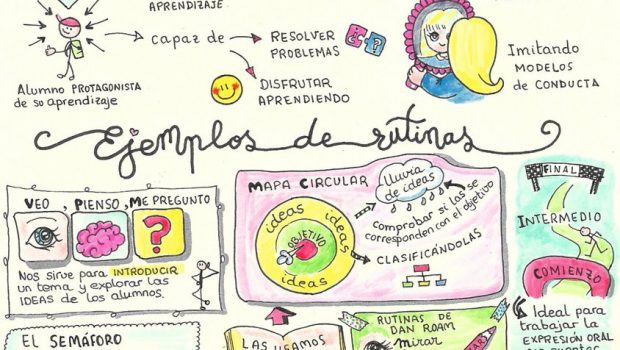 APRENDIZAJE.
capaz de
RESOLVER
PROBLEMAS
DISFRUTAR
APRENDIENDO
Alumno PROTAGONISTA
de su aprendizaje
Imitando
MODELOS
de CONDUCTA
Ejemplos de rutinas
VEO, PIENSO, ME PREGUNTO
?
Nos sirve para INTRODUCIR
un tema y explorar las
IDEAS de los alumnos.
MAPA CIRCULAR
ideas
ideas
ideas
OBJETIVO
lluvia
de ideas
Comprobar si las
se corresponden con el objetivo
CLASIFICÁNDOLAS
FINAL
INTERMEDIO
COMIENZO
Ideal para
trabajar la
EXPRESIÓN ORAL
EL SEMÁFORO
LAS USAMOS
RUTINAS DE
DAN ROAM
mirar